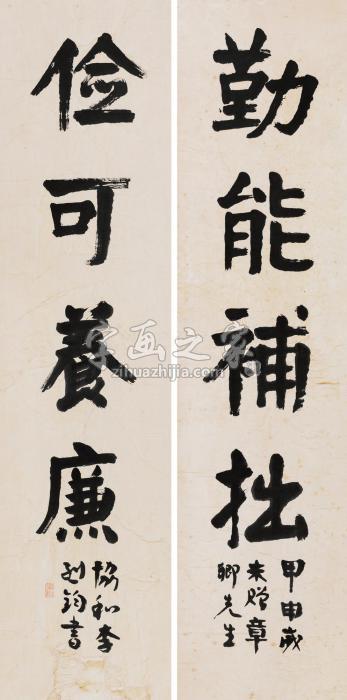 勤能補拙
甲申歲
末贈章
卿先生
俭可養廉
協和李
烈鈞書
字画之家
zihuazhijia.com